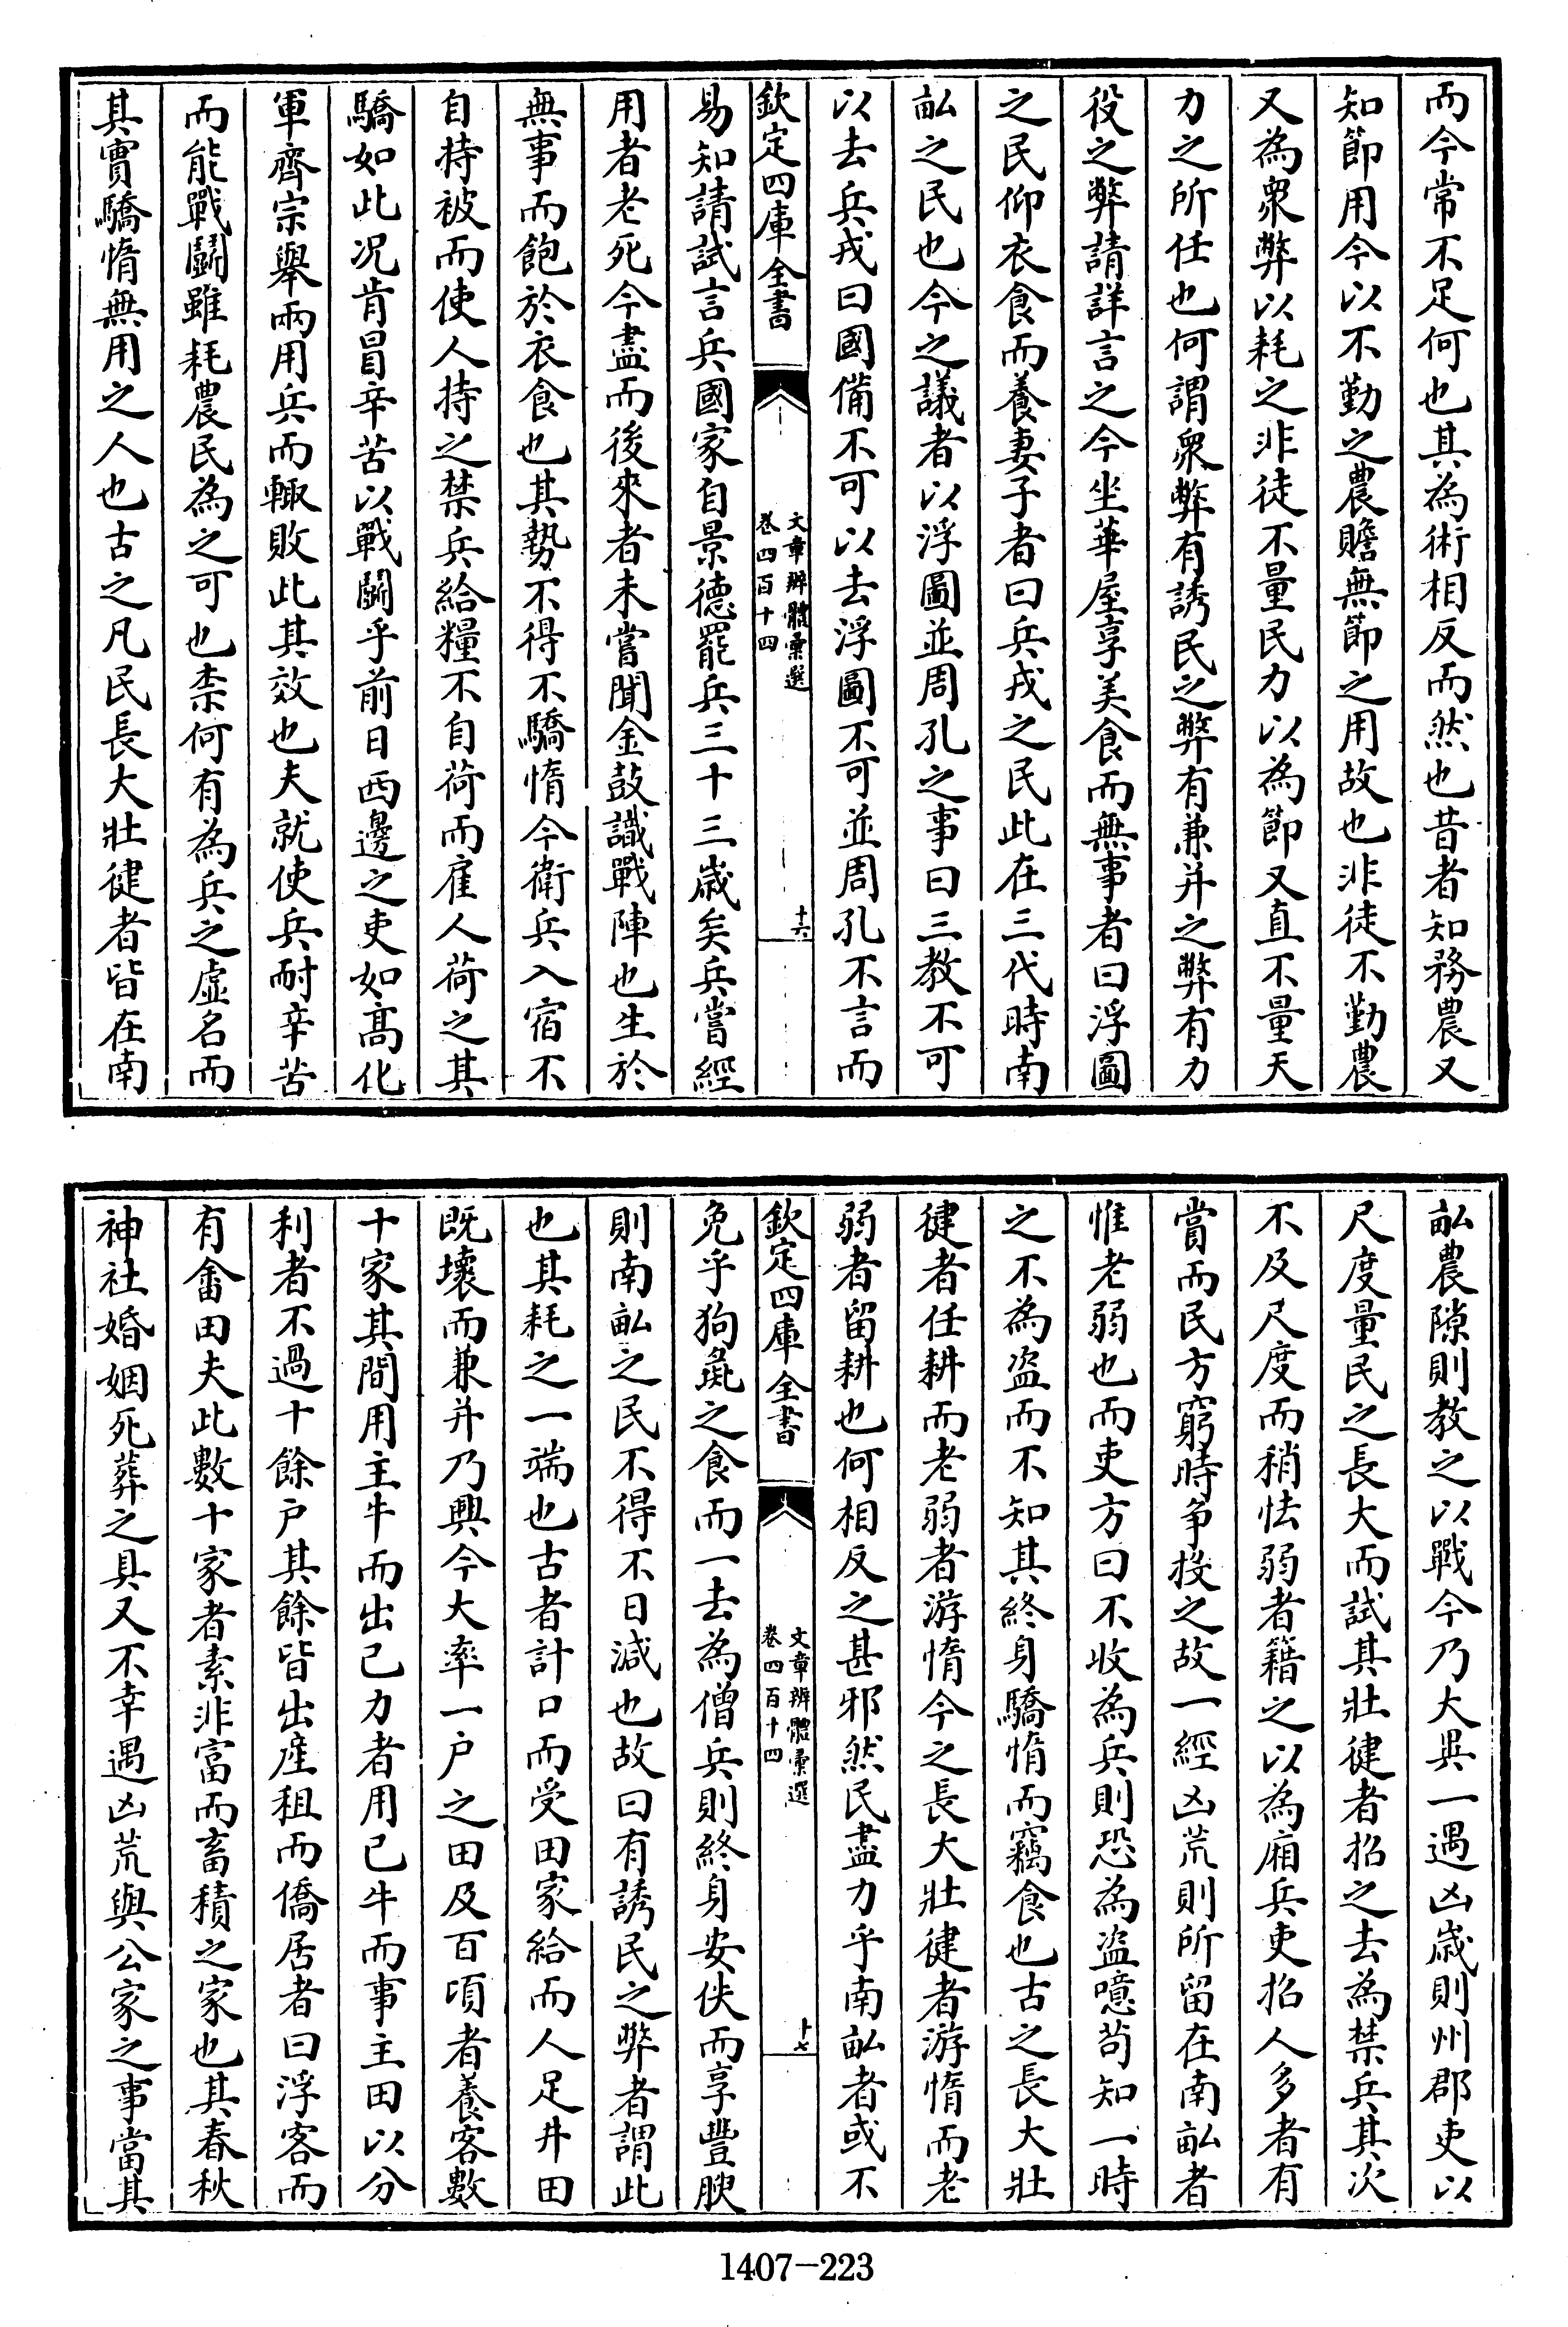 而今常不足何也其為術相反而然也昔者知務農又
知節用今以不勤之農贍無節之用故也非徒不勤農
又為衆弊以耗之非徒不量民力以為節又直不量天
力之所任也何謂衆弊有誘民之弊有兼并之弊有力
役之弊請詳言之今坐華屋享美食而無事者曰浮圖
之民仰衣食而養妻子者曰兵戎之民此在三代時南
畝之民也今之議者以浮圖並周孔之事曰三教不可
以去兵戎曰國備不可以去浮圖不可並周孔不言而
欽定四庫全書
文章辨體彙選
卷四百十四
十六
易知請試言兵國家自景德罷兵三十三歲矣兵嘗經
用者老死今盡而後來者未嘗聞金鼓識戰陣也生於
無事而飽於衣食也其勢不得不驕惰今衛兵入宿不
自持被而使人持之禁兵給糧不自荷而雇人荷之其
驕如此况肯冒辛苦以戰鬭乎前日西邊之吏如高化
軍齊宗舉兩用兵而輙敗此其效也夫就使兵耐辛苦
而能戰鬬雖耗農民為之可也柰何有為兵之虛名而
其實驕惰無用之人也古之凡民長大壯健者皆在南
畝農隙則教之以戰今乃大異一遇凶歲則州郡吏以
尺度量民之長大而試其壯健者招之去為禁兵其次
不及尺度而稍怯弱者籍之以為廂兵吏招人多者有
賞而民方窮時争投之故一經凶荒則所留在南畝者
惟老弱也而吏方曰不收為兵則恐為盜噫苟知一時
之不為盜而不知其終身驕惰而竊食也古之長大壯
健者任耕而老弱者游惰今之長大壯健者游惰而老
弱者留耕也何相反之甚邪然民盡力乎南畝者或不
欽定四庫全書
文章辨體彙選
卷四百十四
十七
免乎狗彘之食而一去為僧兵則終身安佚而享豐腴
則南畝之民不得不日減也故曰有誘民之弊者謂此
也其耗之一端也古者計口而受田家給而人足井田
既壞而兼并乃興今大率一户之田及百頃者養客數
十家其間用主牛而出己力者用己牛而事主田以分
利者不過十餘户其餘皆出產租而僑居者曰浮客而
有畬田夫此數十家者素非富而畜積之家也其春秋
神社婚姻死葬之具又不幸遇凶荒與公家之事當其
1407-223